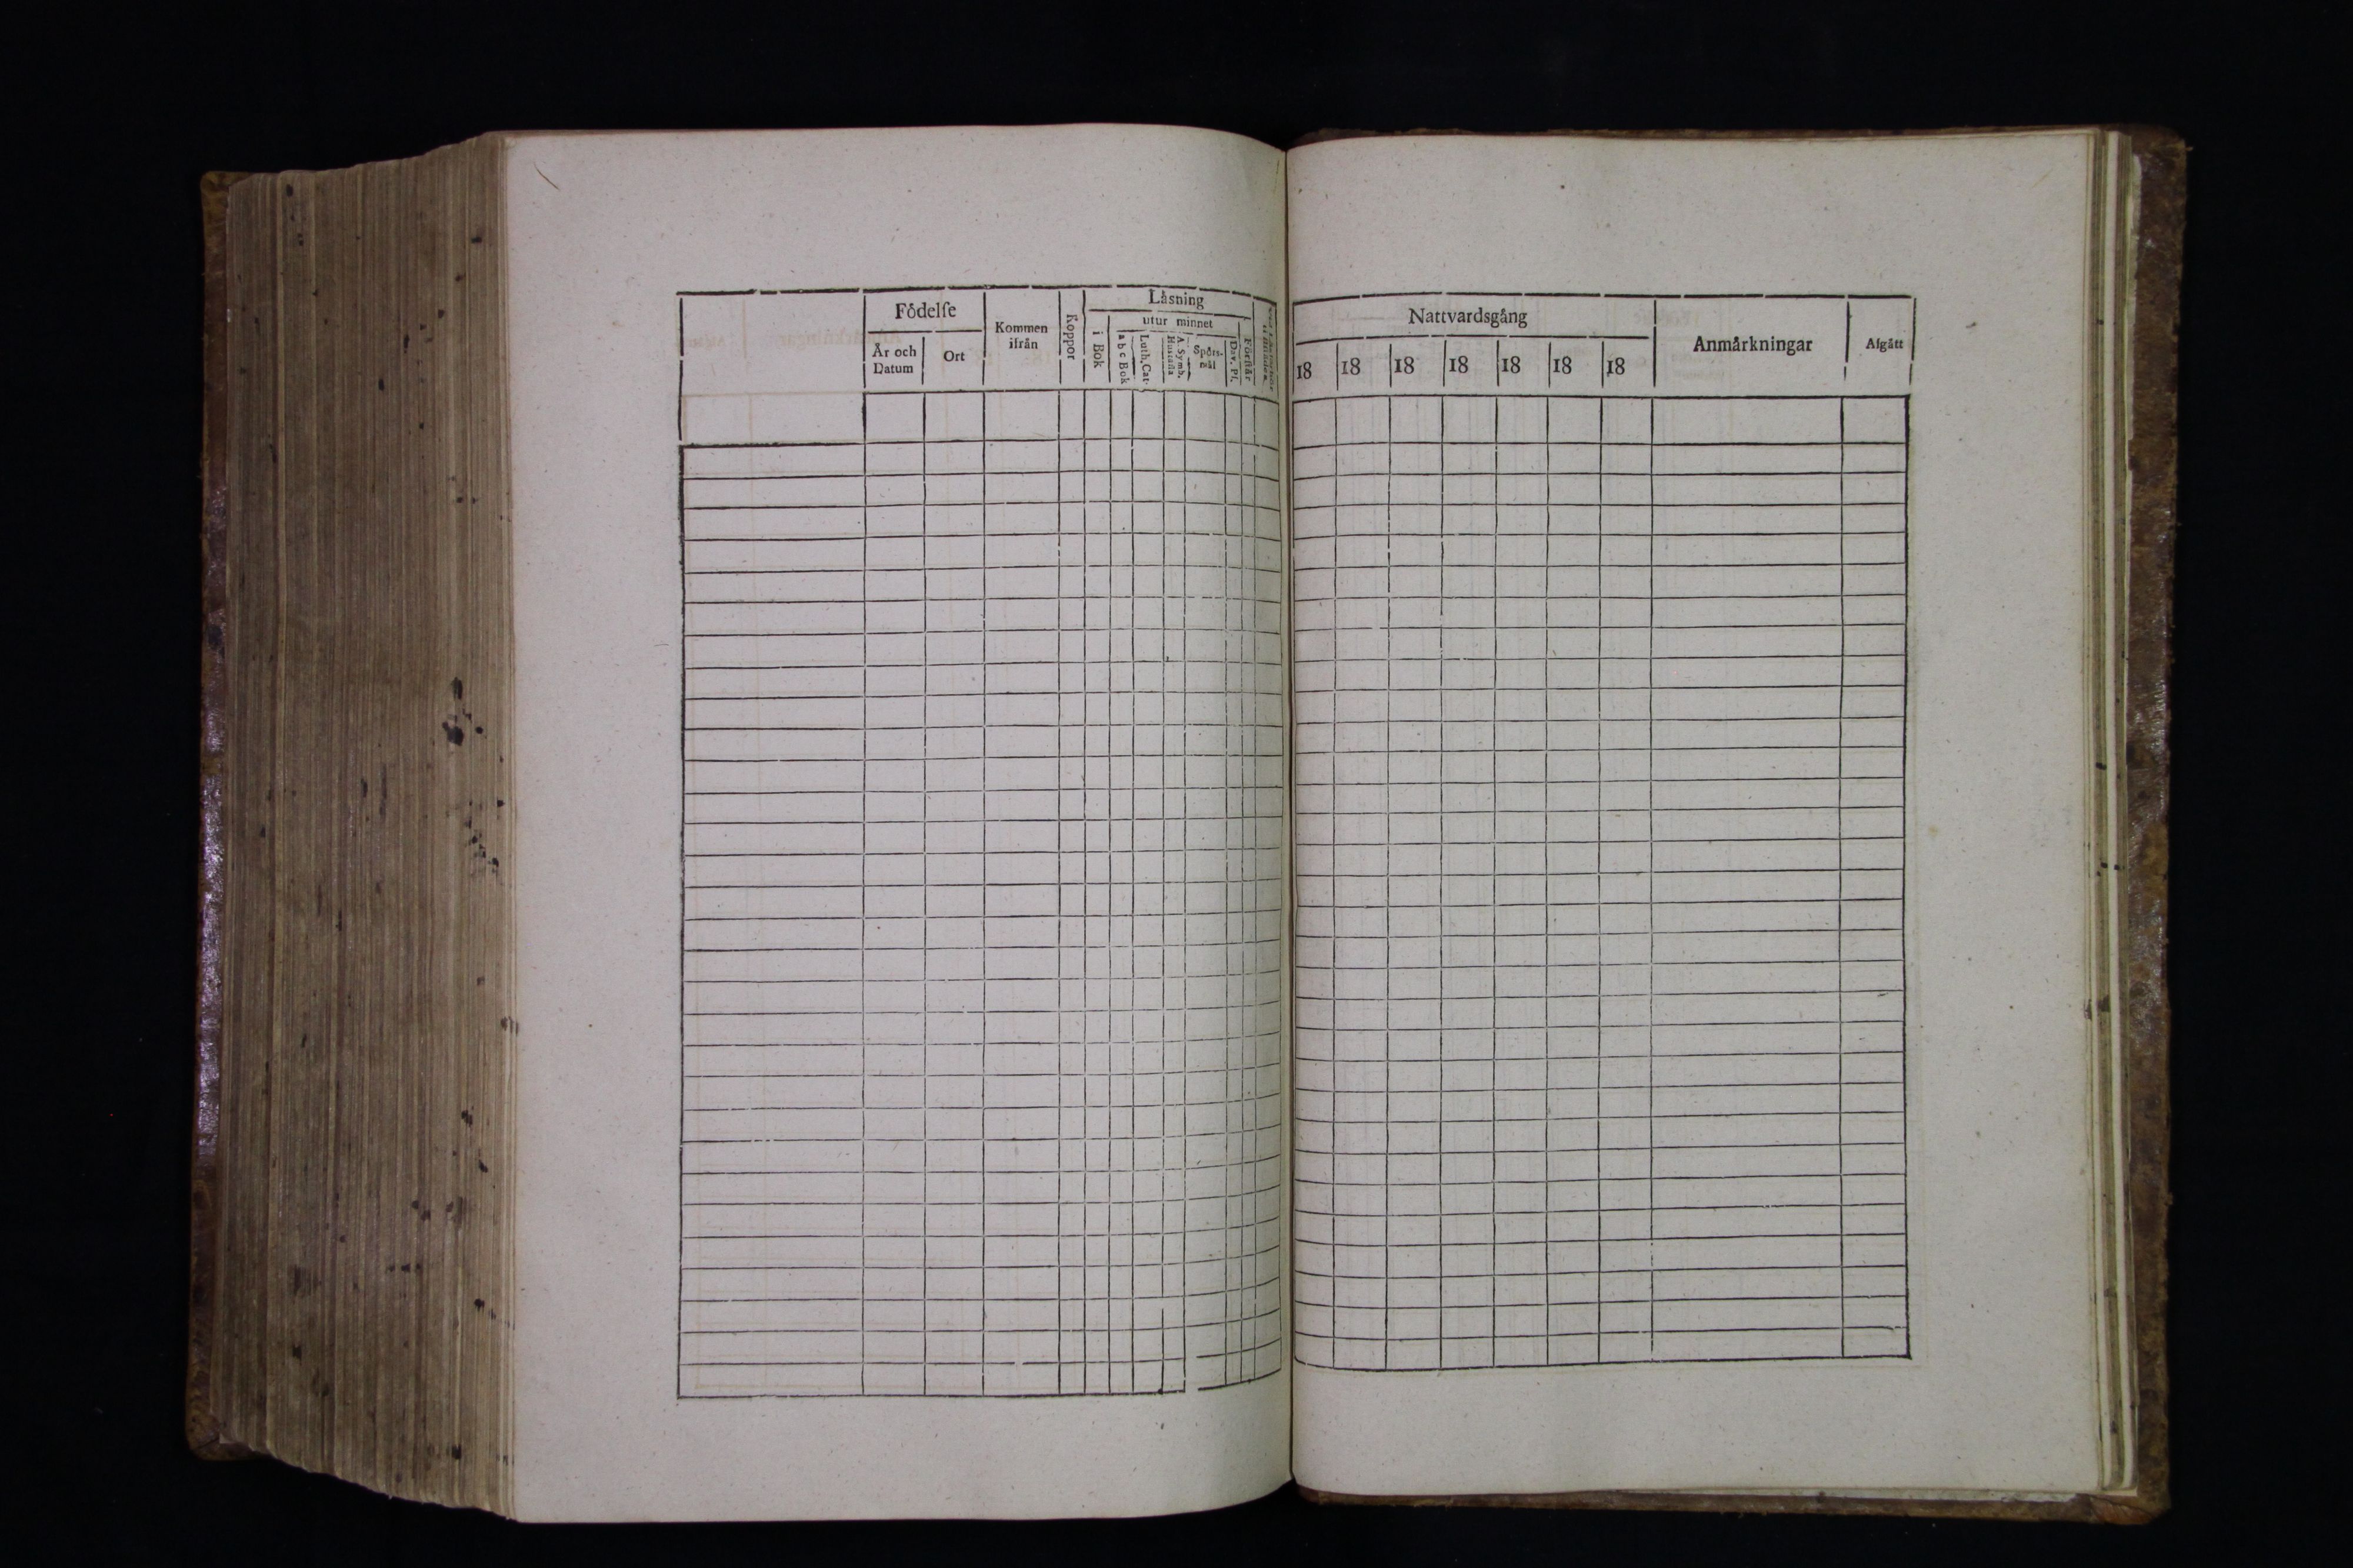 Födelſe
År och Datum
Ort
Kommen ifrån
Koppor
Läsning
i Bok
utur minnet
a b c Bok
Luth. Cat.
Hustafla
A. Symb.
Spörs-
mål
Dav. Pſ.
Förſtår
Nattvardsgång
18 18 18 18 18 18 18
Anmärkningar
Afgått